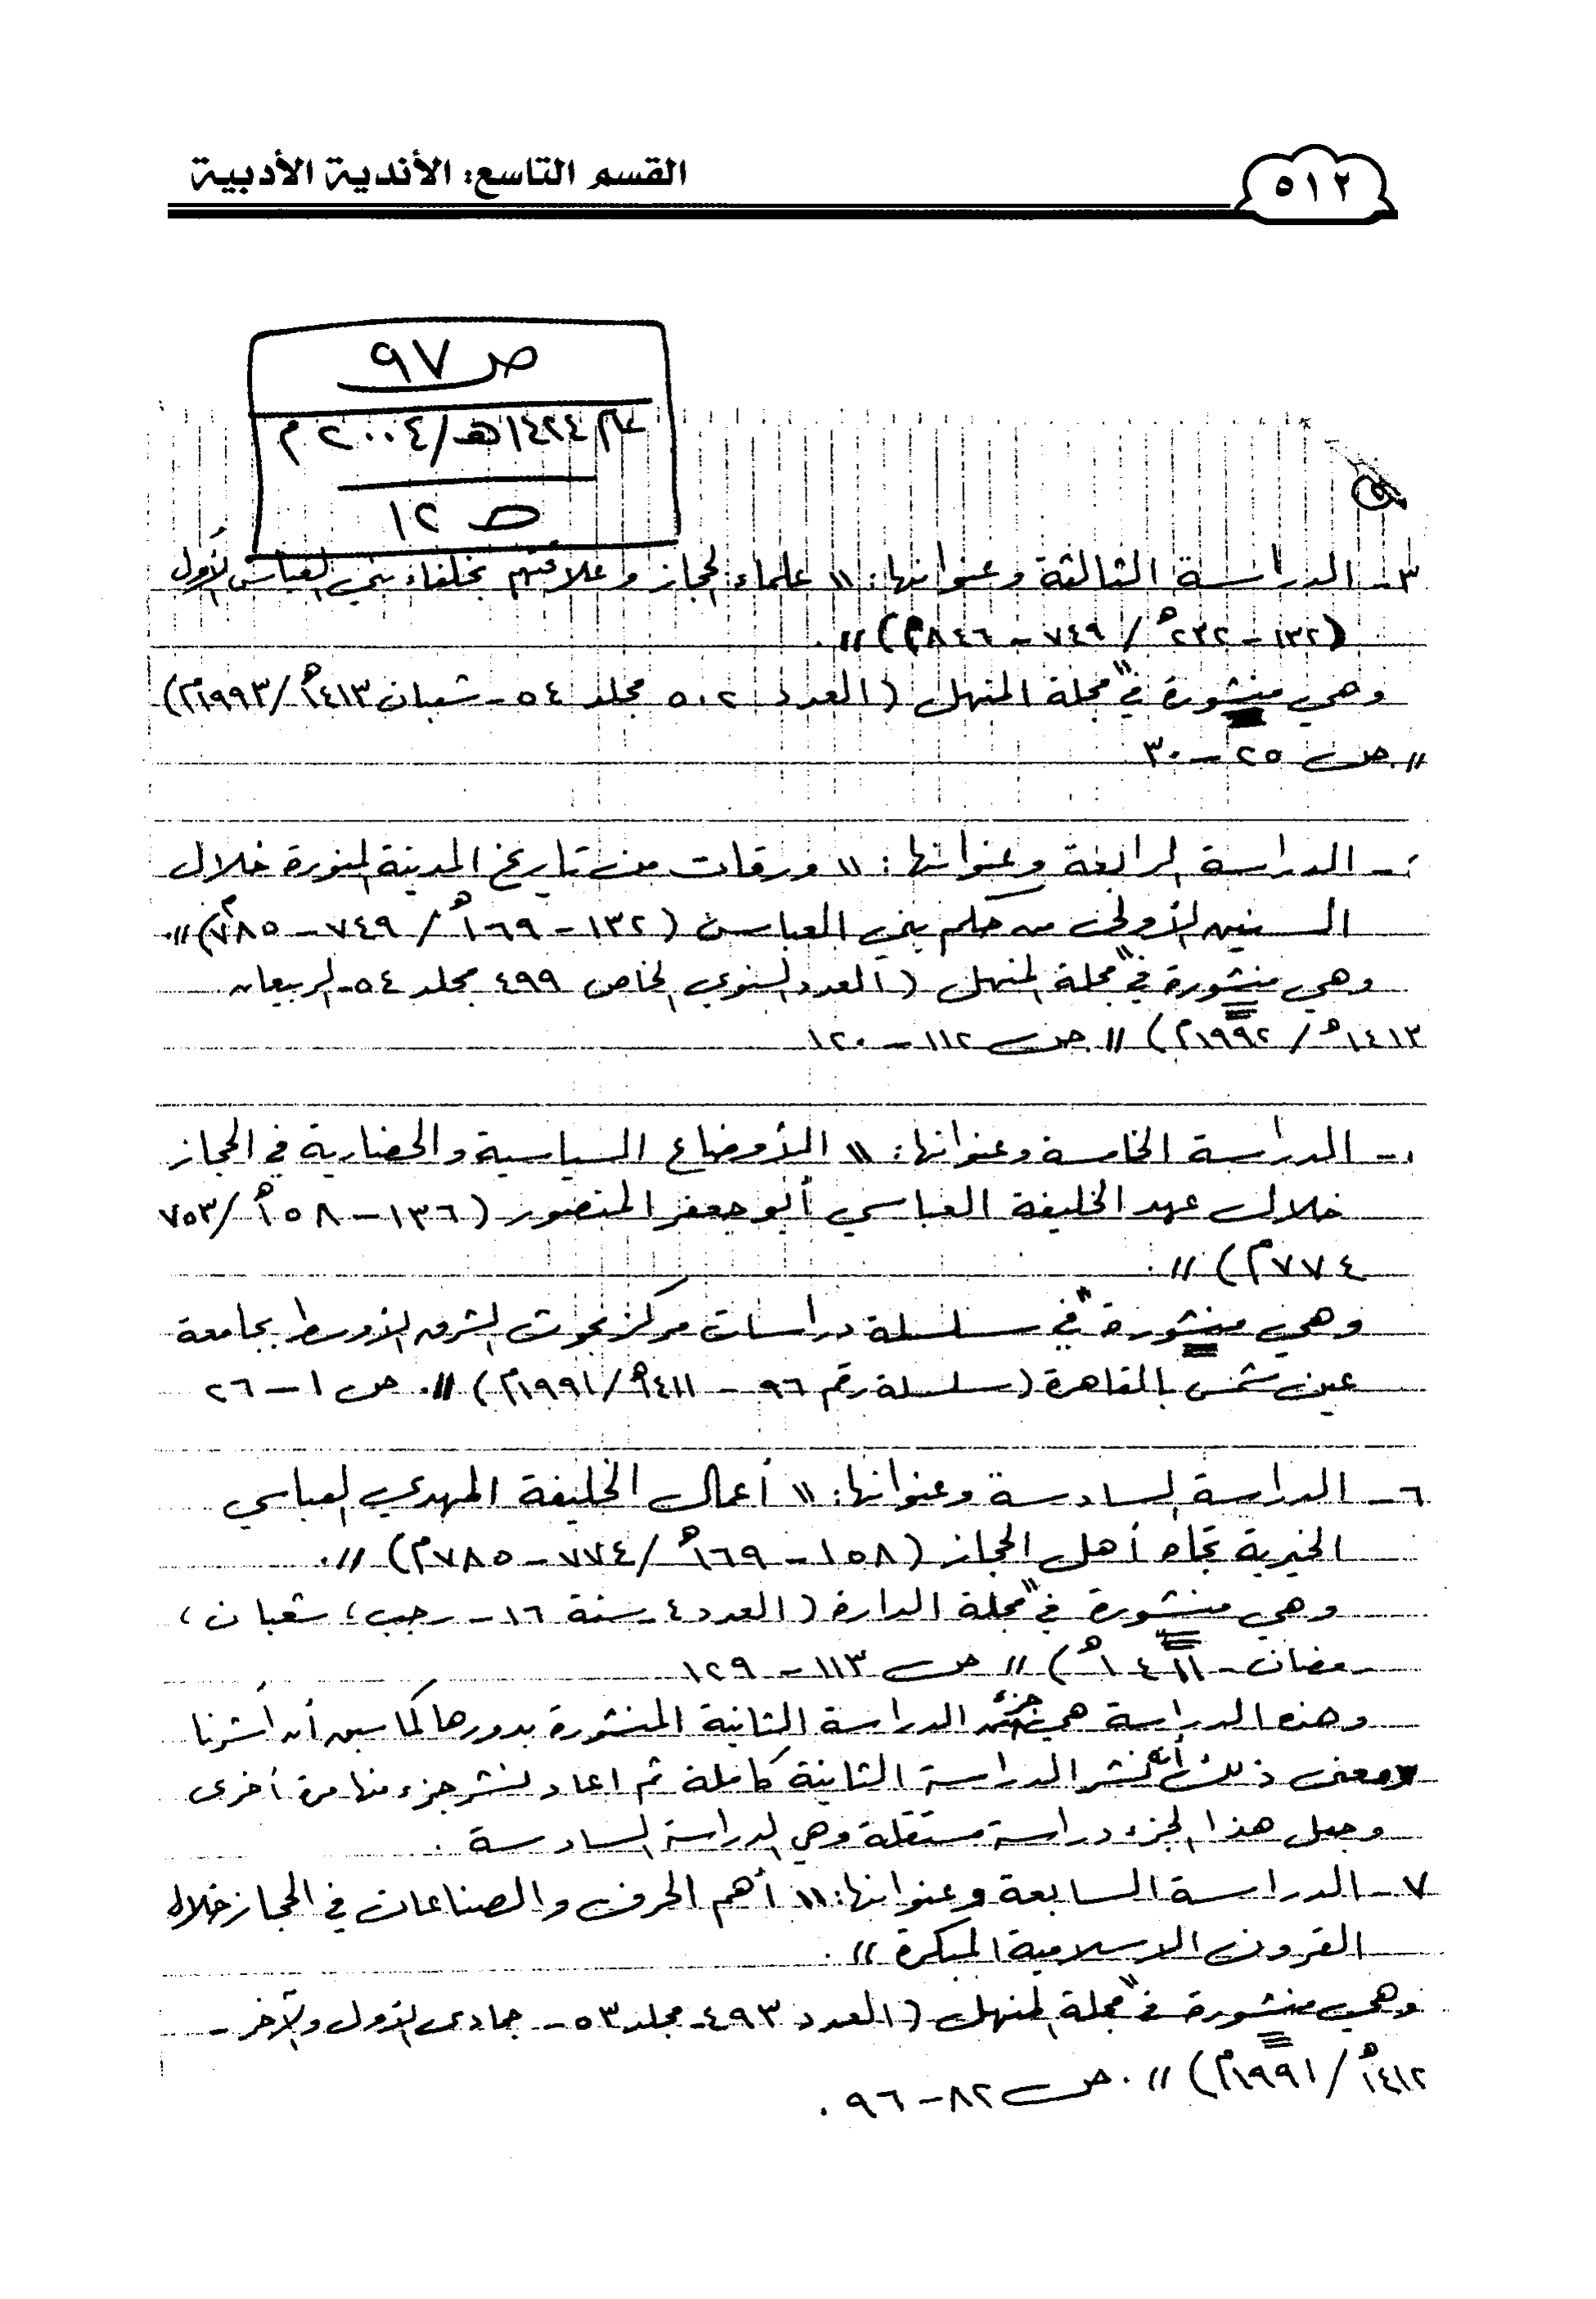 ٥١٢
القسم التاسع: الأندية الأدبية
ص ٩٧
١٤٢٤هـ/٢٠٠٤م
ص ١٢
٣- الدراسة الثالثة وعنوانها: "علماء الحجاز وعلاقتهم بخلفاء بني العباس الأول
(١٣٢-٢٣٢هـ/٧٤٩-٨٤٦م)".
وهي منشورة في "مجلة المنهل (العدد ٥٠٢ مجلد ٥٤- شعبان ١٤١٣هـ/١٩٩٣م)
" ص ٢٥-٣٠
- الدراسة الرابعة وعنوانها: "ورقات من تاريخ المدينة المنورة خلال
السنين الأولى من حكم بني العباس (١٣٢-١٦٩هـ/٧٤٩-٧٨٥م)".
وهي منشورة في "مجلة المنهل (العدد السنوي الخاص ٤٩٩ مجلد ٥٤- الربيعان
١٤١٣هـ/١٩٩٢م)" ص ١١٢-١٢٠
- الدراسة الخامسة وعنوانها: "الأوضاع السياسية والحضارية في الحجاز
خلال عهد الخليفة العباسي أبو جعفر المنصور (١٣٦-١٥٨هـ/٧٥٣
٧٧٤م)".
وهي منشورة "في سلسلة دراسات مركز بحوث الشرق الأوسط بجامعة
عين شمس بالقاهرة (سلسلة رقم ٩٦-١٤١١هـ/١٩٩١م)". ص ١-٢٦
٦- الدراسة السادسة وعنوانها: "أعمال الخليفة المهدي العباسي
الخيرية تجاه أهل الحجاز (١٥٨-١٦٩هـ/٧٧٤-٧٨٥م)".
وهي منشورة في "مجلة الدارة (العدد ٤ سنة ١٦- رجب، شعبان،
رمضان- ١٤١١هـ)" ص ١١٣-١٢٩
وهذه الدراسة هي جزء من الدراسة الثانية المنشورة بدورها كما سبق أن أشرنا
ومعنى ذلك أنه نشر الدراسة الثانية كاملة ثم اعاد لنشر جزء منها مرة أخرى
وجعل هذا الجزء دراسة مستقلة وهي الدراسة السادسة.
٧- الدراسة السابعة وعنوانها: "أهم الحرف والصناعات في الحجاز خلال
القرون الاسلامية المبكرة".
وهي منشورة في "مجلة المنهل (العدد ٤٩٣- مجلد ٥٣- جمادى الأول والآخر-
١٤١٢هـ/١٩٩١م)". ص ٨٢-٩٦.